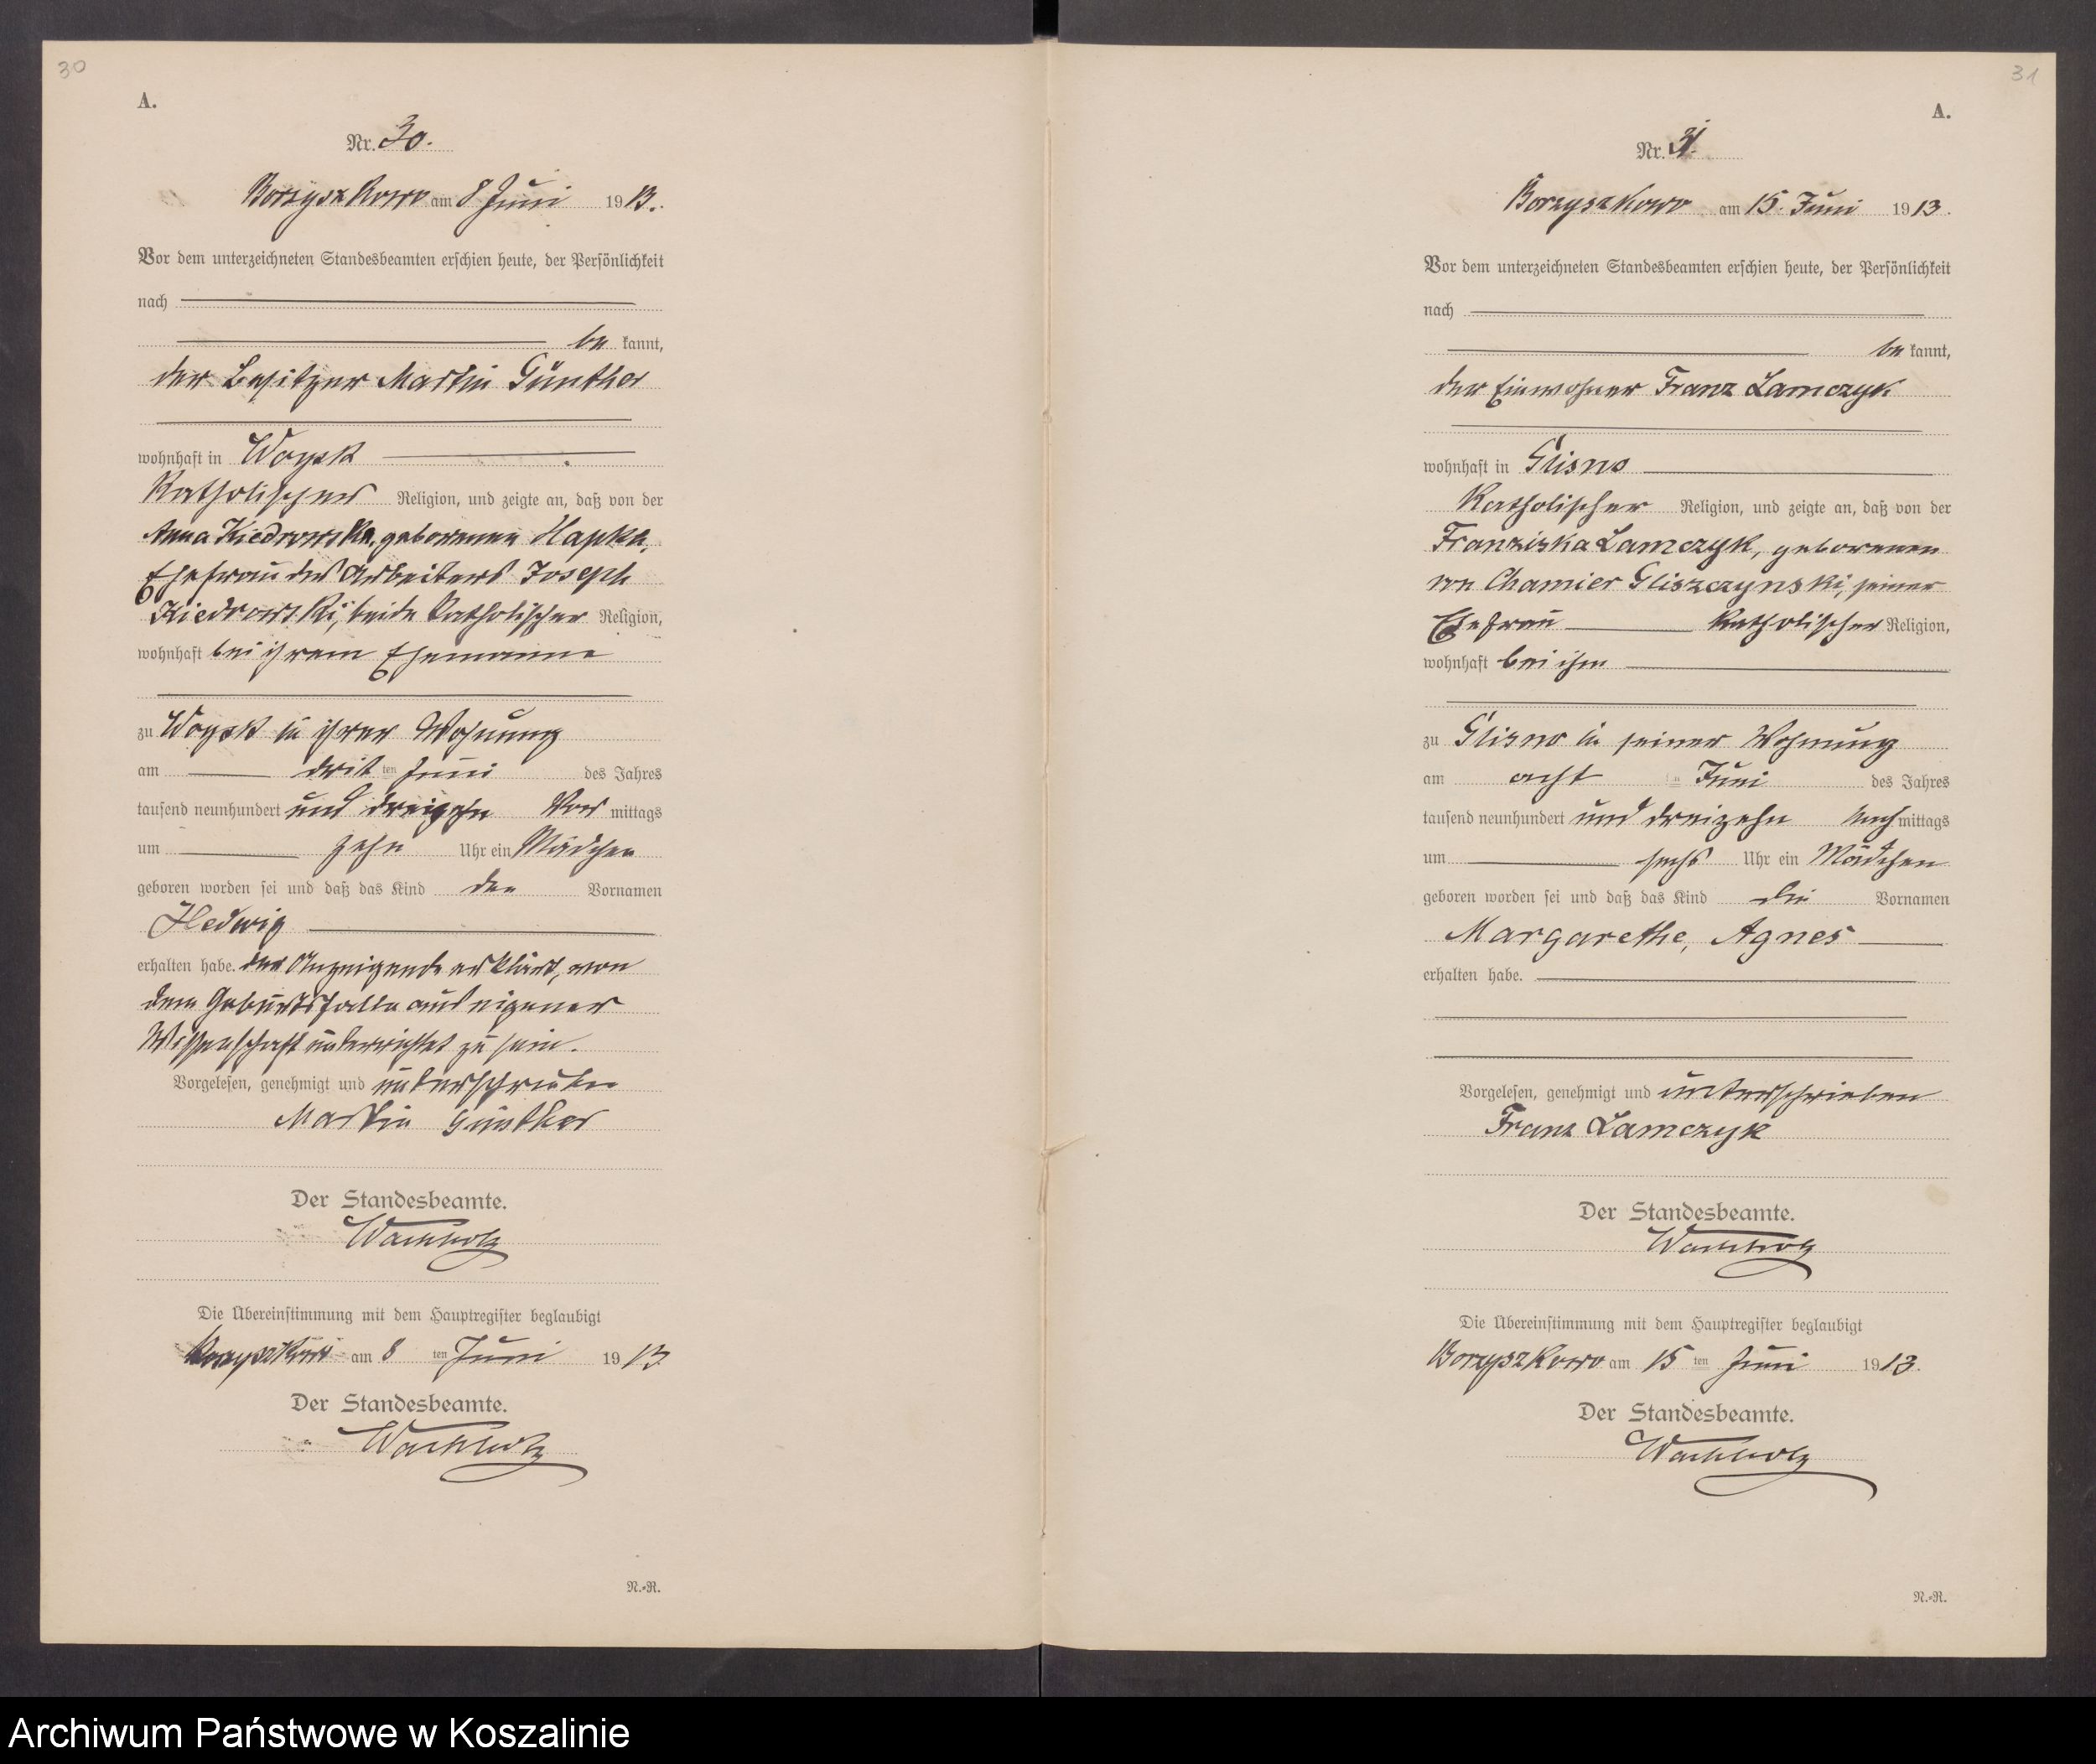 30
A.
Nr. 30.
Borzyszkowo am 8 Juni 1913.
Vor dem unterzeichneten Standesbeamten erschien heute, der Persönlichkeit
nach
be kannt,
der Besitzer Martin Günther
wohnhaft in Woysk
Katholischer Religion, und zeigte an, daß von der
Anna Kiedrowska, geborenen Hapka,
Ehefrau des Arbeiters Joseph
Kiedrowski, beide katholischer Religion,
wohnhaft bei ihrem Ehemanne
zu Woysk in ihrer Wohnung
am dritten Juni des Jahres
tausend neunhundert und dreizehn Vor mittags
um zehn Uhr ein Mädchen
geboren worden sei und daß das Kind den Vornamen
Hedwig
erhalten habe. der Anzeigende erklärt, von
dem Geburtsfalle aus eigener
Wissenschaft unterrichtet zu sein.
Vorgelesen, genehmigt und unterschrieben
Martin Günther
Der Standesbeamte.
Wachholz
Die Übereinstimmung mit dem Hauptregister beglaubigt
Borzyszkowo am 8 ten Juni 1913
Der Standesbeamte.
Wachholz
N.-R.
31
A.
Nr. 31.
Borzyszkowo am 15. Juni 1913.
Vor dem unterzeichneten Standesbeamten erschien heute, der Persönlichkeit
nach
be kannt,
der Einwohner Franz Lamczyk
wohnhaft in Glisno
Katholischer Religion, und zeigte an, daß von der
Franziska Lamczyk, geborenen
von Chamier Gliszczynski, seiner
Ehefrau katholischer Religion,
wohnhaft bei ihm
zu Glisno in seiner Wohnung
am acht ten Juni des Jahres
tausend neunhundert und dreizehn Nach mittags
um sechs Uhr ein Mädchen
geboren worden sei und daß das Kind die Vornamen
Margarethe, Agnes
erhalten habe.
Vorgelesen, genehmigt und unterschrieben
Franz Lamczyk
Der Standesbeamte.
Wachholz
Die Übereinstimmung mit dem Hauptregister beglaubigt
Borzyszkowo am 15 ten Juni 1913.
Der Standesbeamte.
Wachholz
N.-R.
Archiwum Państwowe w Koszalinie